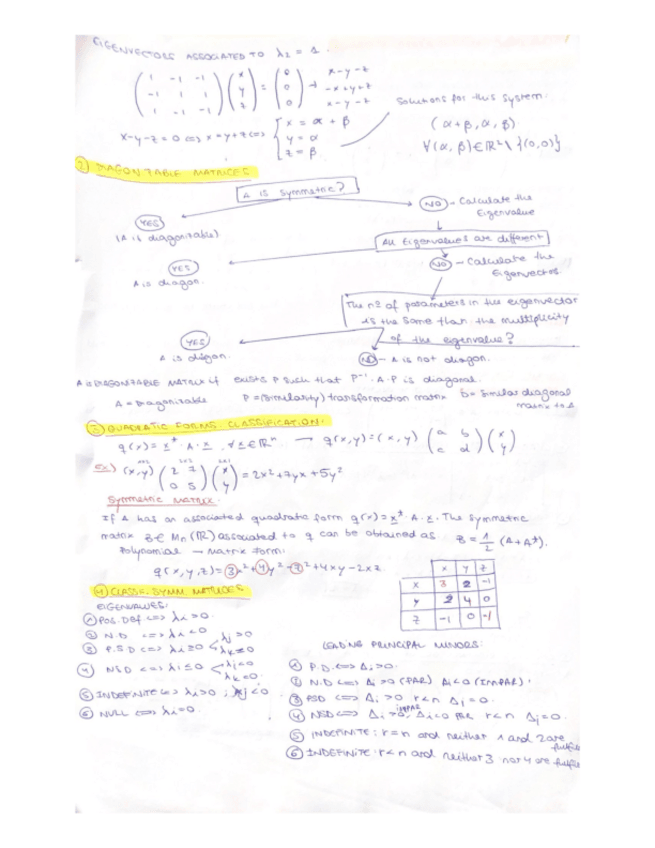 EIGENVECTORS ASSOCIATED TO λ2 = 1.
( 1 -1 -1 ) (x) = (0) → x-y-z
( -1 1 1 ) (y) (0) -x+y+z
( 1 -1 -1 ) (z) (0) x-y-z
Solutions for this system:
x-y-z = 0 <=> x = y+z <=> { x = α + β
y = α
z = β
(α+β, α, β)
∀(α, β) ∈ ℝ² \ {(0,0)}
2) DIAGONIZABLE MATRICES
A IS SYMMETRIC?
YES
(A is diagonizable)
NO - Calculate the
Eigenvalue
All Eigenvalues are different
YES
A is diagon.
NO - Calculate the
Eigenvectors
The nº of parameters in the eigenvector
is the same than the multiplicity
of the eigenvalue?
YES
A is diagon.
NO - A is not diagon.
A is DIAGONIZABLE MATRIX if exists P such that P⁻¹·A·P is diagonal.
A = Diagonizable P = (Similarity) transformation matrix D = Similar diagonal
matrix to A
3) QUADRATIC FORMS. CLASSIFICATION:
q(x) = x^t · A · x, ∀x ∈ ℝⁿ → q(x,y) = (x, y) ( a b ) (x)
( c d ) (y)
ex) (x,y) ( 2 7 ) (x) = 2x²+7yx+5y²
( 0 5 ) (y)
Symmetric MATRIX.
If A has an associated quadratic form q(x) = x^t A · x. The symmetric
matrix B ∈ Mn(ℝ) associated to q can be obtained as B = 1/2 (A+A^t).
Polynomial → Matrix Form:
q(x,y,z) = 3x²+4y²-z²+4xy-2xz
x y z
x 3 2 -1
y 2 4 0
z -1 0 -1
4) CLASSIF. SYMM. MATRICES
EIGENVALUES:
1 POS. DEF <=> λi > 0.
2 N.D <=> λi < 0
3 P.S.D <=> λi ≥ 0 λj > 0
λk = 0
4 NSD <=> λi ≤ 0 λj < 0
λk = 0.
5 INDEFINITE <=> λi > 0, λj < 0
6 NULL <=> λi = 0.
LEADING PRINCIPAL MINORS:
1 P.D. <=> Δi > 0.
2 N.D <=> Δi > 0 (PAR) Δi < 0 (IMPAR)
3 PSD <=> Δi > 0 r<n Δj = 0.
4 NSD <=> Δi > 0, impar Δi < 0 PAR r<n Δj = 0.
5 INDEFINITE: r=n and neither 1 and 2 are
fulfilled
6 INDEFINITE: r<n and neither 3 nor 4 are fulfilled